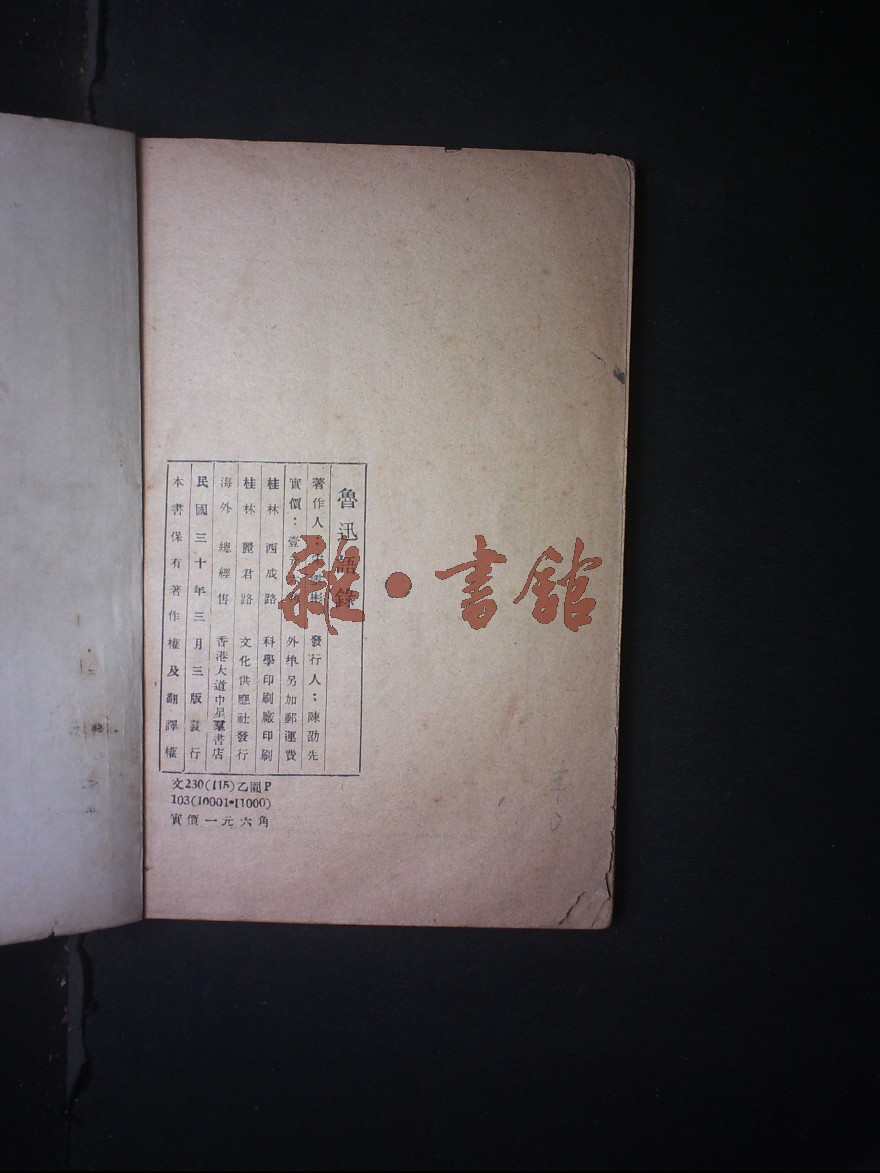 魯迅語錄
著作人：宋雲彬 發行人：陳劭先
實價：壹 外埠另加郵運費
桂林西成路 科學印刷廠印刷
桂林麗君路 文化供應社發行
海外總經售 香港大道中星羣書店
民國三十年三月三版發行
本書保有著作權及翻譯權
文230(115)乙開P
103(10001-11000)
實價一元六角
雜·書館